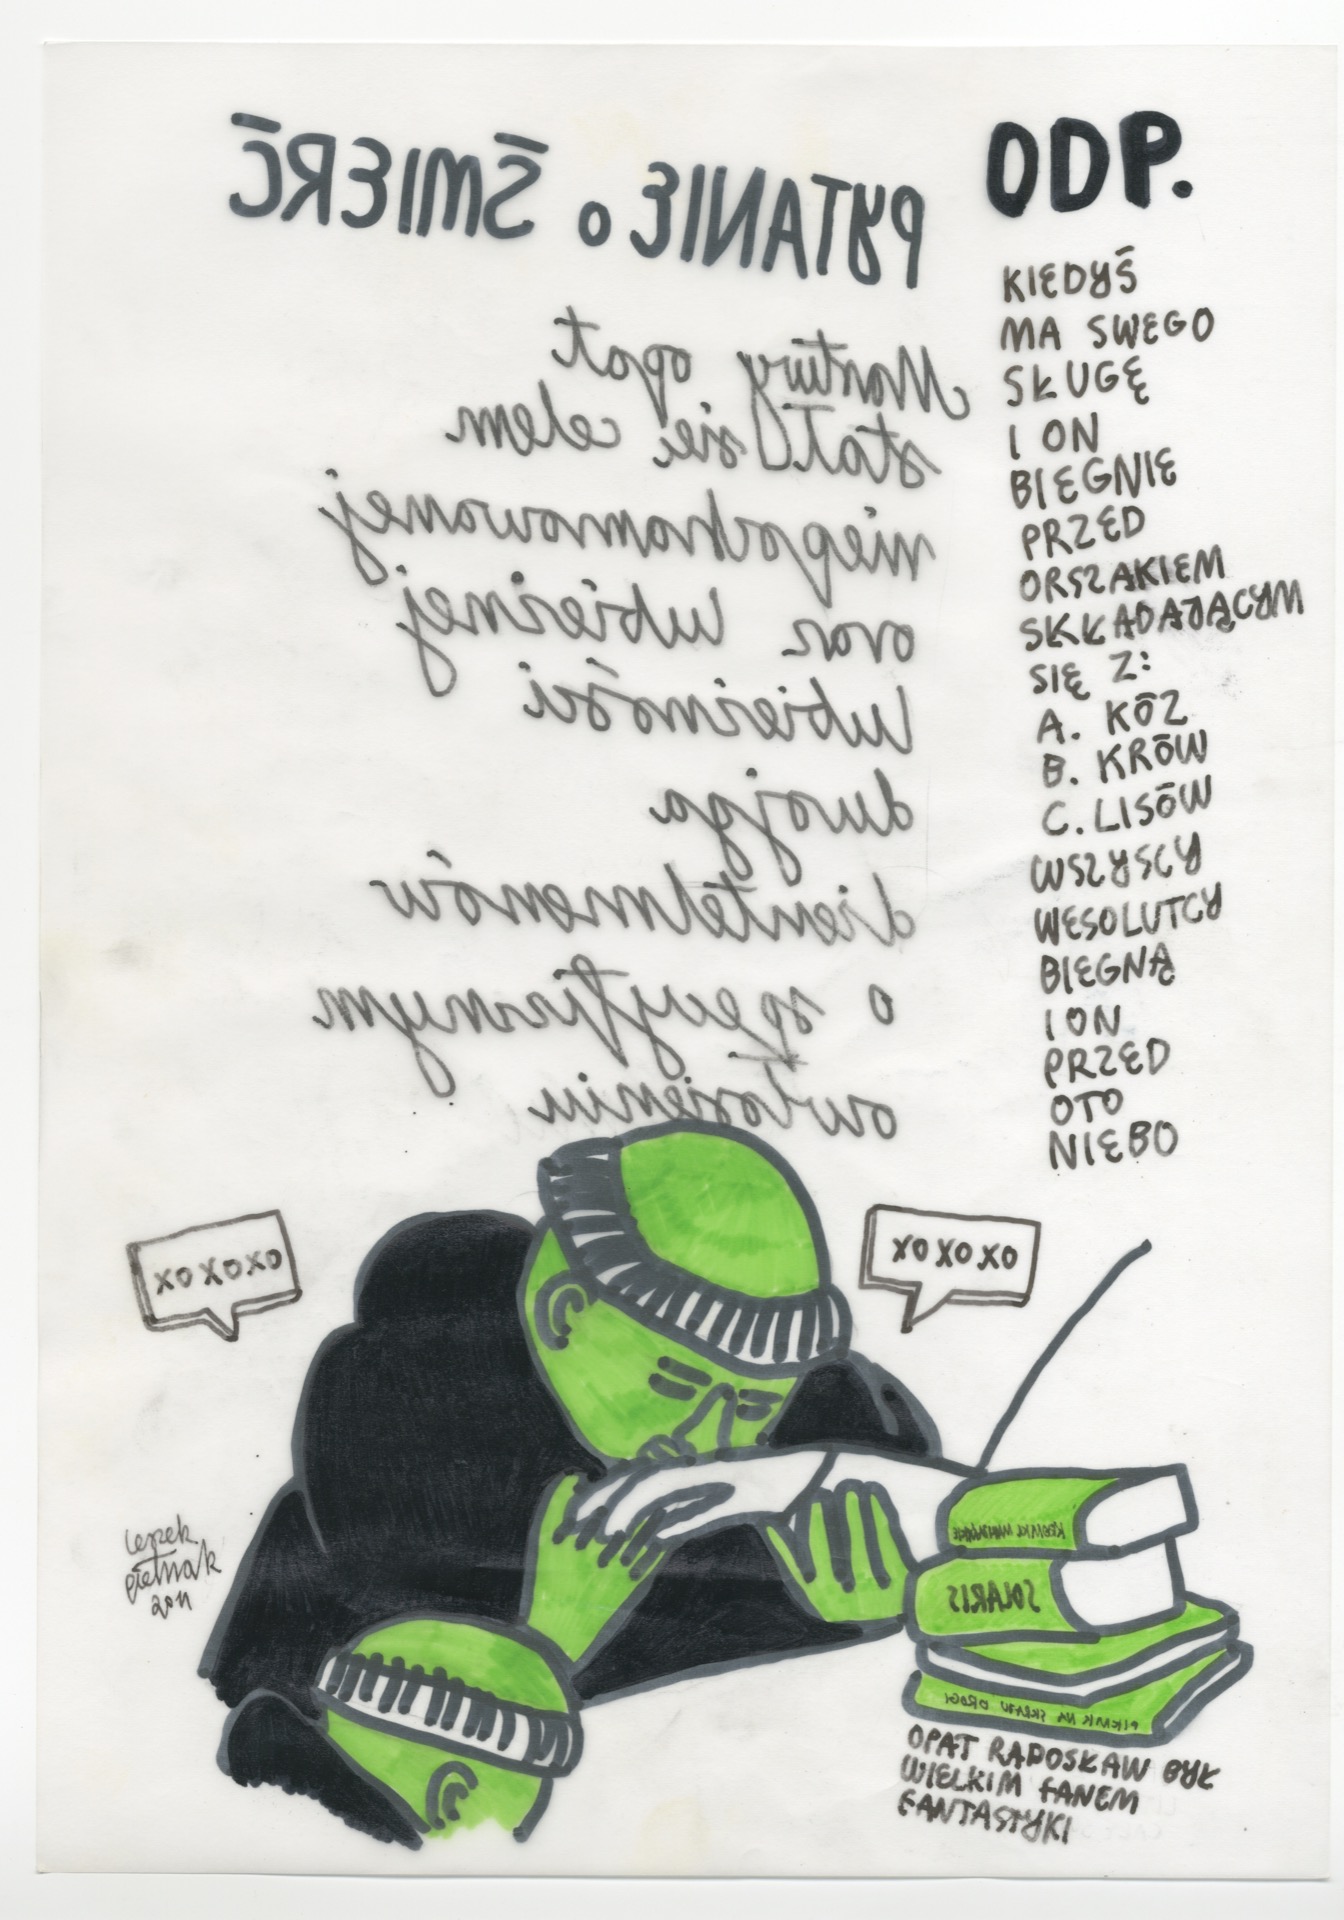 PYTANIE o ŚMIERĆ
Martwy opat
stał się celem
niepochamowanej
oraz lubieżnej
lubieżności
dwojga
dżentelmenów
o specyficznym
owłosieniu
ODP.
KIEDYŚ
MA SWEGO
SŁUGĘ
I ON
BIEGNIE
PRZED
ORSZAKIEM
SKŁADAJĄCYM
SIĘ Z:
A. KÓZ
B. KRÓW
C. LISÓW
WSZYSCY
WESOLUTCY
BIEGNĄ
I ON
PRZED
OTO
NIEBO
XOXOXO
XOXOXO
SOLARIS
PIKNIK NA SKRAJU DROGI
OPAT RADOSŁAW BYŁ
WIELKIM FANEM
FANTASTYKI
2011